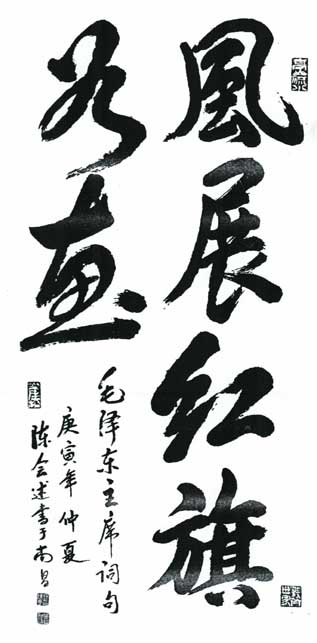 風展红旗
如画
毛泽东主席词句
庚寅年仲夏
陈会述書于南昌